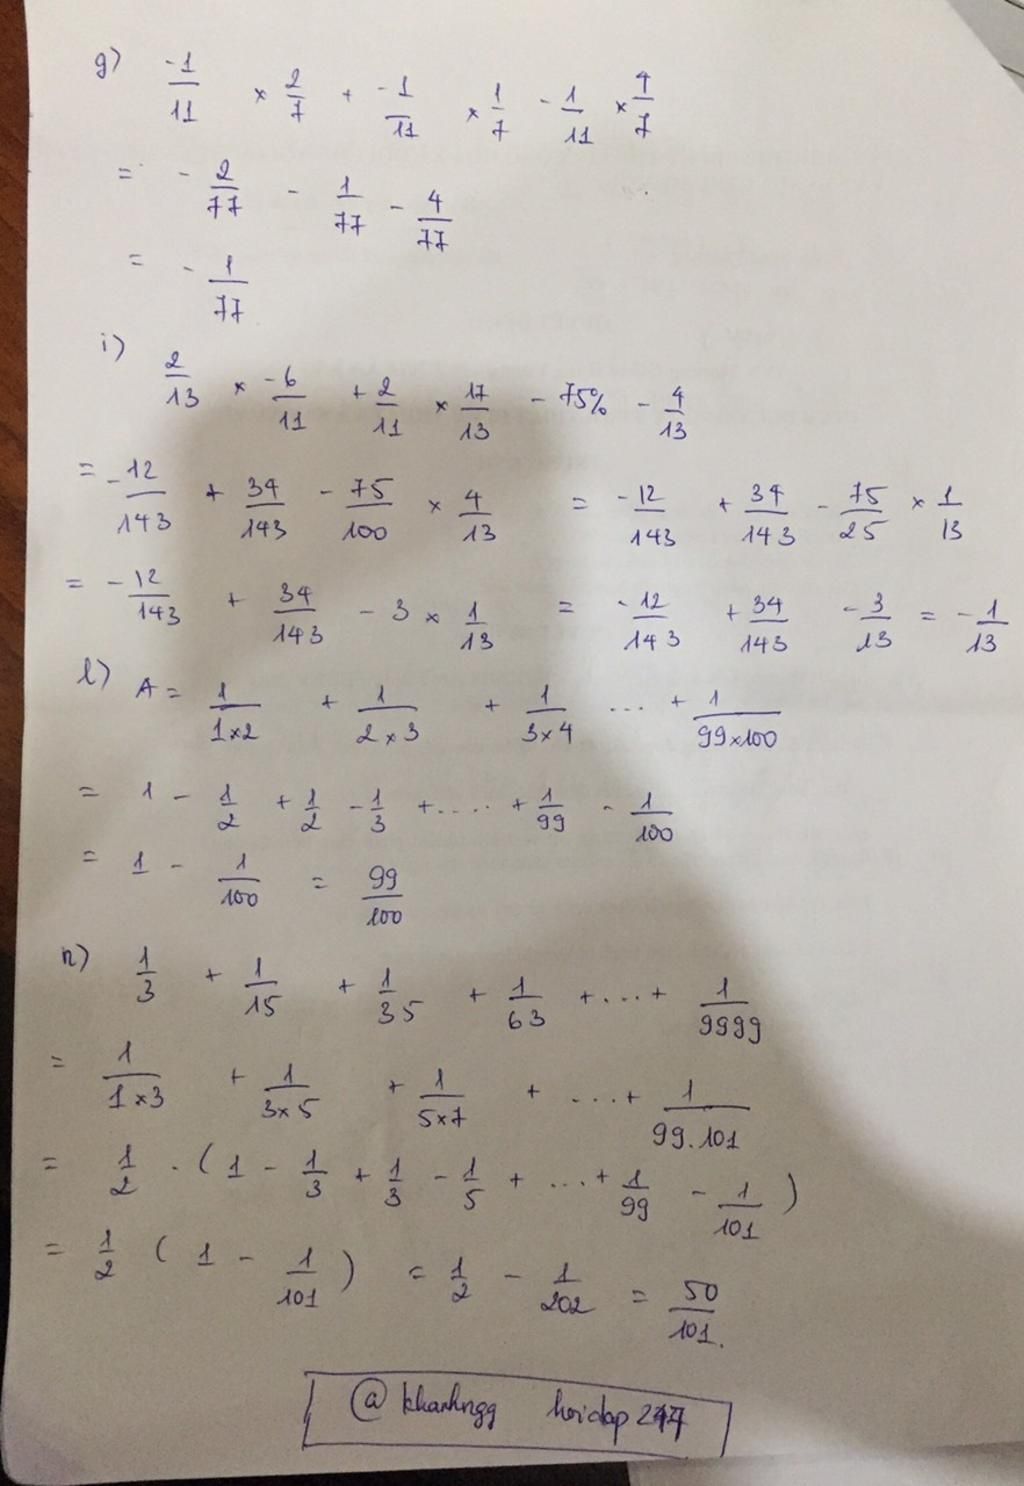 g) -1/11 × 2/7 + -1/11 × 1/7 - 1/11 × 4/7
= - 2/77 - 1/77 - 4/77
= - 1/77
i) 2/13 × -6/11 + 2/11 × 17/13 - 75% - 4/13
= -12/143 + 34/143 - 75/100 × 4/13 = -12/143 + 34/143 - 75/25 × 1/13
= -12/143 + 34/143 - 3 × 1/13 = -12/143 + 34/143 - 3/13 = -1/13
l) A = 1/1×2 + 1/2×3 + 1/3×4 ... + 1/99×100
= 1 - 1/2 + 1/2 - 1/3 + .... + 1/99 - 1/100
= 1 - 1/100 = 99/100
n) 1/3 + 1/15 + 1/35 + 1/63 + ... + 1/9999
= 1/1×3 + 1/3×5 + 1/5×7 + ... + 1/99.101
= 1/2 . ( 1 - 1/3 + 1/3 - 1/5 + ... + 1/99 - 1/101 )
= 1/2 ( 1 - 1/101 ) = 1/2 - 1/202 = 50/101.
@ khanhngg hoidap 247